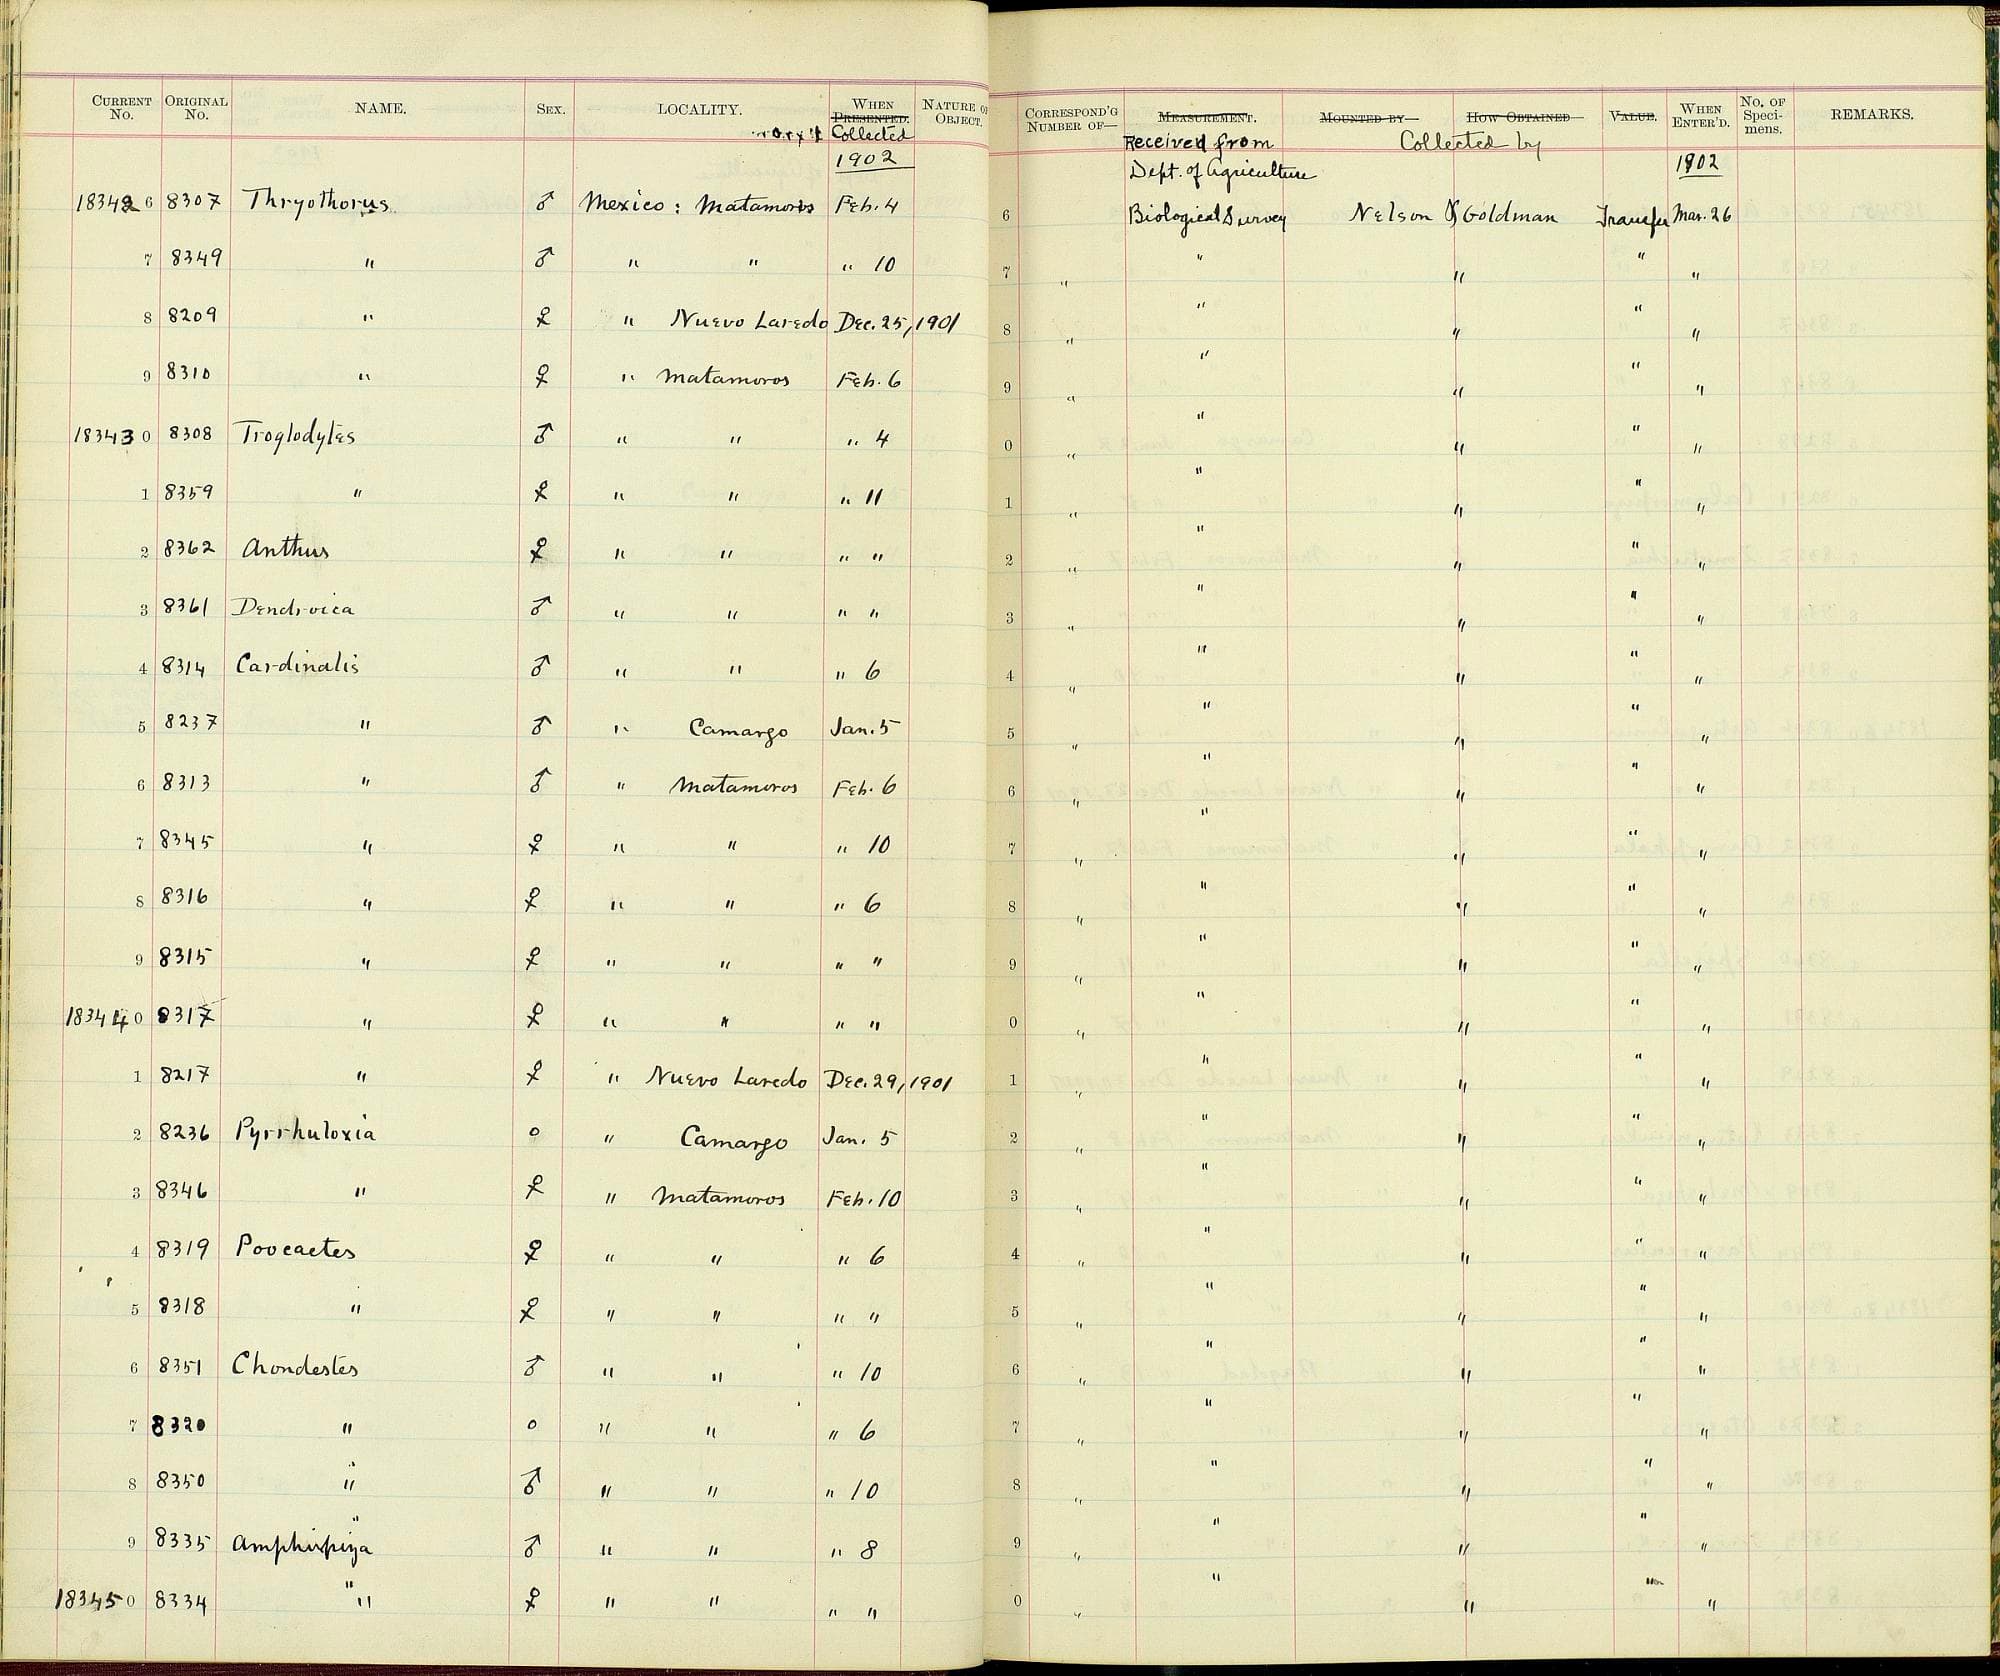 CURRENT No. ORIGINAL No. NAME. SEX. LOCALITY. WHEN PRESENTED. NATURE OF OBJECT.
Collected
1902
18342 6 8307 Thryothorus ♂ Mexico: Matamoros Feb. 4
7 8349 " ♂ " " " 10
8 8209 " ♀ " Nuevo Laredo Dec. 25, 1901
9 8310 " ♀ " Matamoros Feb. 6
18343 0 8308 Troglodytes ♂ " " " 4
1 8359 " ♀ " " " 11
2 8362 Anthus ♀ " " " "
3 8361 Dendroica ♂ " " " "
4 8314 Cardinalis ♂ " " " 6
5 8237 " ♂ " Camargo Jan. 5
6 8313 " ♂ " Matamoros Feb. 6
7 8345 " ♀ " " " 10
8 8316 " ♀ " " " 6
9 8315 " ♀ " " " "
18344 0 8317 " ♀ " " " "
1 8217 " ♀ " Nuevo Laredo Dec. 29, 1901
2 8236 Pyrrhuloxia o " Camargo Jan. 5
3 8346 " ♀ " Matamoros Feb. 10
4 8319 Poocaetes ♀ " " " 6
5 8318 " ♀ " " " "
6 8351 Chondestes ♂ " " " 10
7 8320 " o " " " 6
8 8350 " ♂ " " " 10
9 8335 Amphispiza ♂ " " " 8
18345 0 8334 " ♀ " " " "
CORRESPOND'G NUMBER OF— MEASUREMENT. MOUNTED BY— HOW OBTAINED VALUE. WHEN ENTER'D. No. OF Speci-mens. REMARKS.
Received from Collected by
Dept. of Agriculture 1902
6 Biological Survey Nelson & Goldman Transfer Mar. 26
7 " " " " "
8 " " " " "
9 " " " " "
0 " " " " "
1 " " " " "
2 " " " " "
3 " " " " "
4 " " " " "
5 " " " " "
6 " " " " "
7 " " " " "
8 " " " " "
9 " " " " "
0 " " " " "
1 " " " " "
2 " " " " "
3 " " " " "
4 " " " " "
5 " " " " "
6 " " " " "
7 " " " " "
8 " " " " "
9 " " " " "
0 " " " " "